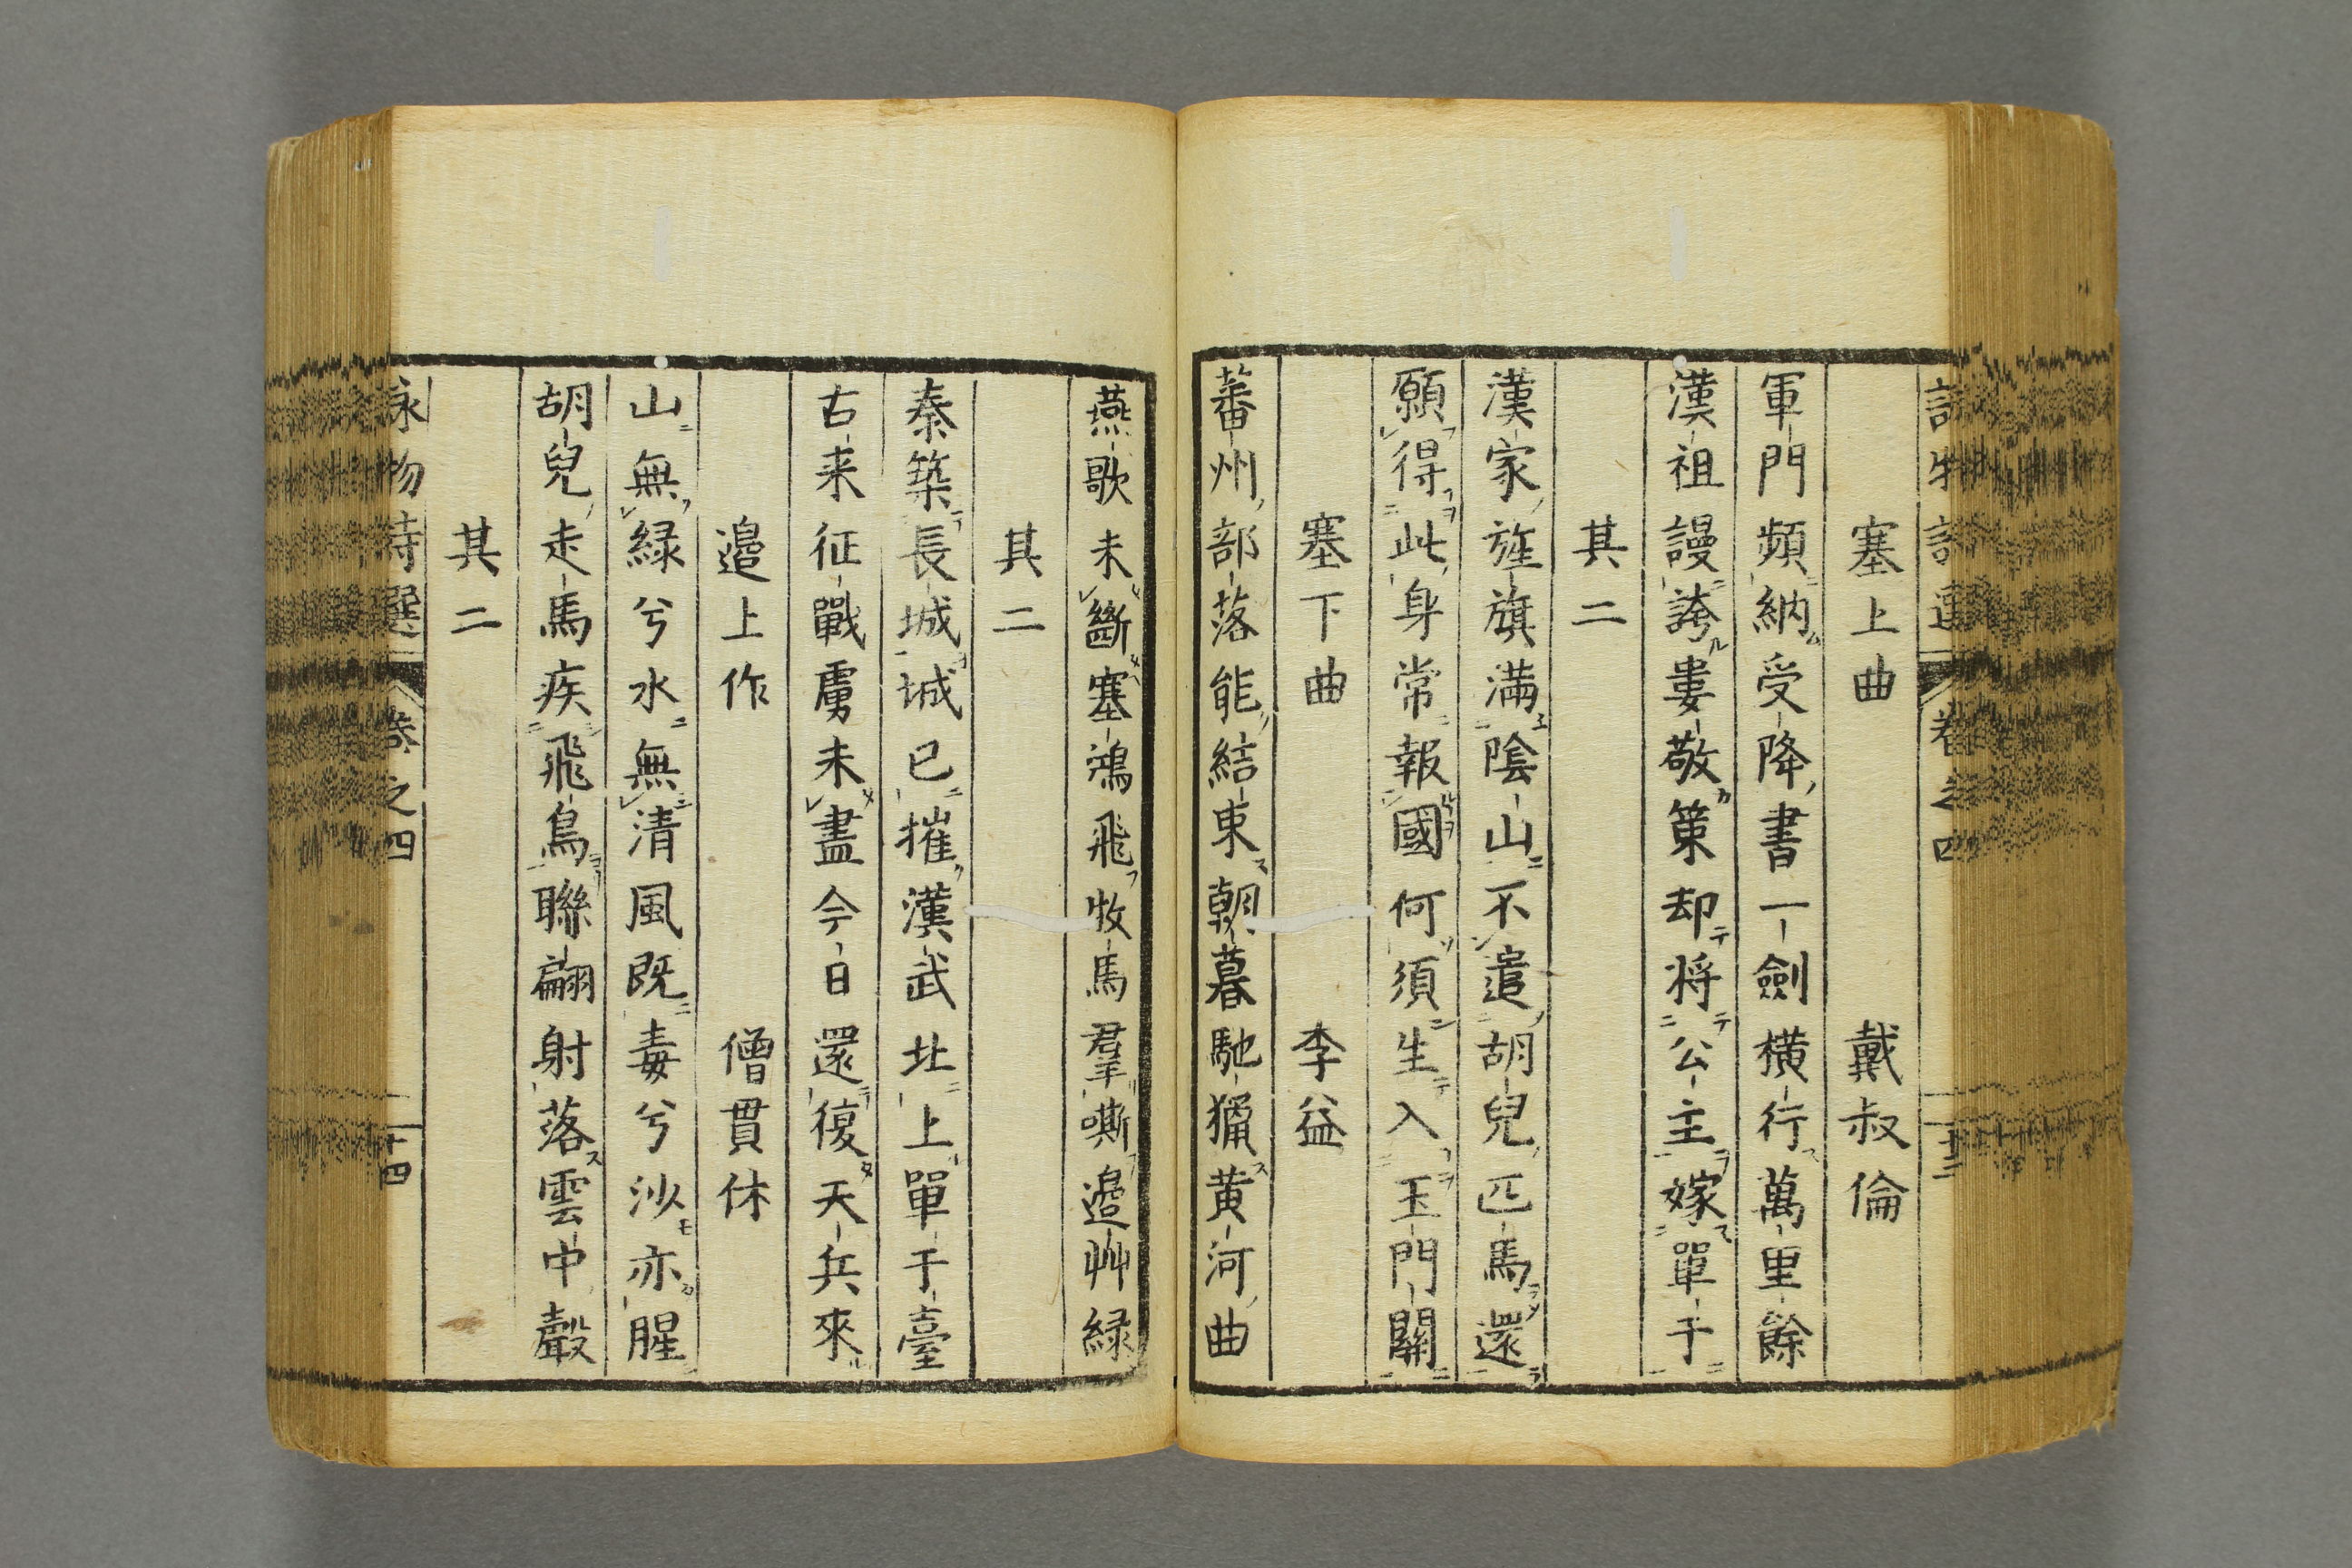 塞上曲 戴叔倫
軍門頻納受降書一劍橫行萬里餘
漢祖謾誇婁敬策却将公主嫁單于
其二
漢家旌旗滿陰山不遣胡兒匹馬還
願得此身常報國何須生入玉門關
塞下曲 李益
蕃州部落能結束朝暮馳獵黄河曲
燕歌未斷塞鴻飛牧馬羣嘶邉艸緑
其二
秦築長城城已摧漢武北上單于臺
古来征戰虜未盡今日還復天兵來
邉上作 僧貫休
山無緑兮水無清風既毒兮沙亦腥
胡兒走馬疾飛鳥聯翩射落雲中聲
其二
詠物詩選 卷之四 十四